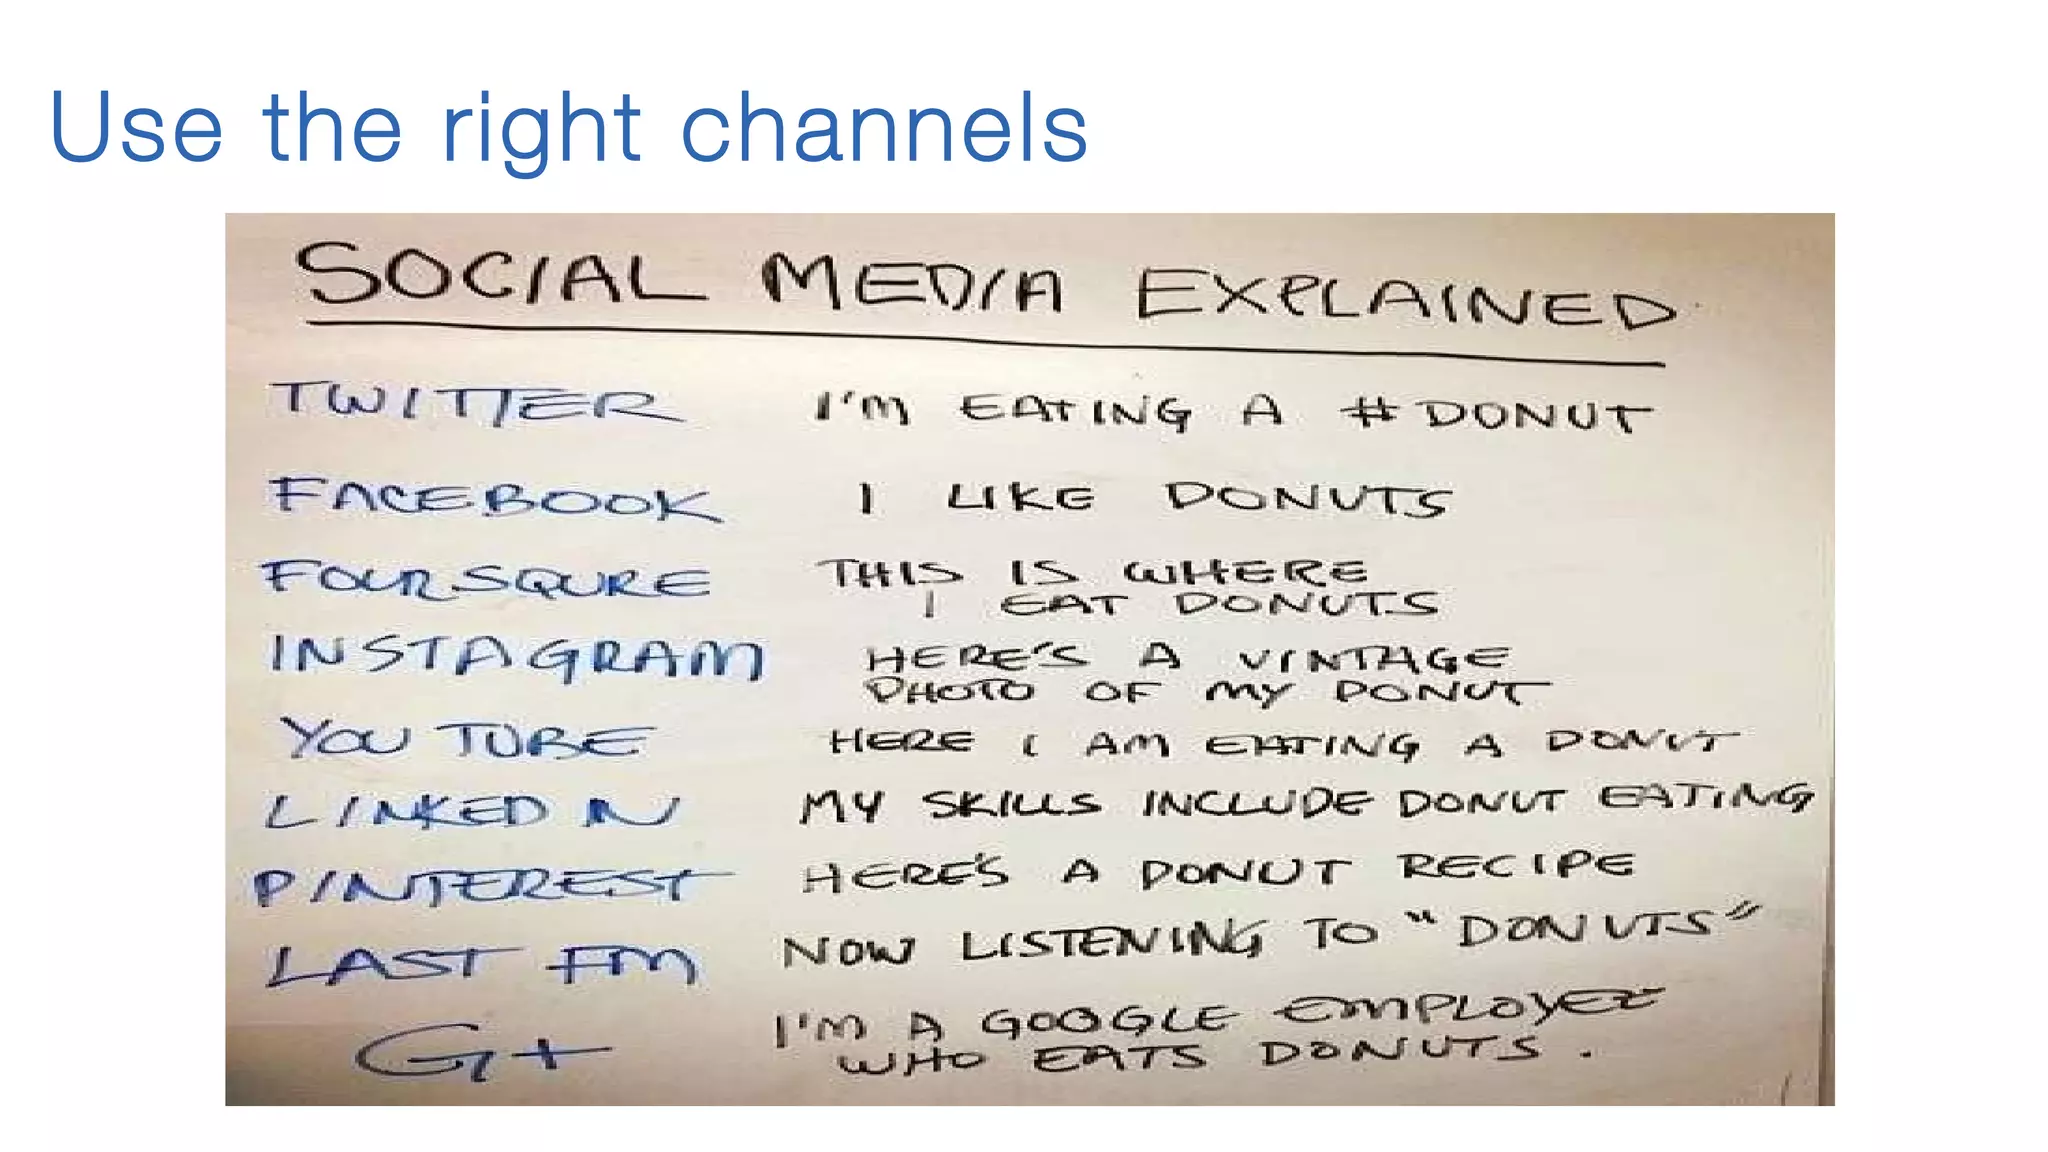 Use the right channels
SOCIAL MEDIA EXPLAINED
TWITTER I'M EATING A #DONUT
FACEBOOK I LIKE DONUTS
FOURSQURE THIS IS WHERE
I EAT DONUTS
INSTAGRAM HERE'S A VINTAGE
PHOTO OF MY DONUT
YOU TUBE HERE I AM EATING A DONUT
LINKED IN MY SKILLS INCLUDE DONUT EATING
PINTEREST HERE'S A DONUT RECIPE
LAST FM NOW LISTENING TO "DONUTS"
G+ I'M A GOOGLE EMPLOYEE
WHO EATS DONUTS.